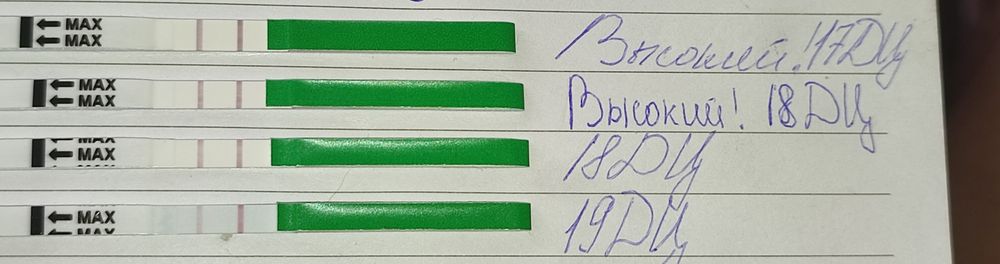 MAX
MAX
Высокий! 17ДЦ
MAX
MAX
Высокий! 18ДЦ
MAX
18ДЦ
MAX
19ДЦ